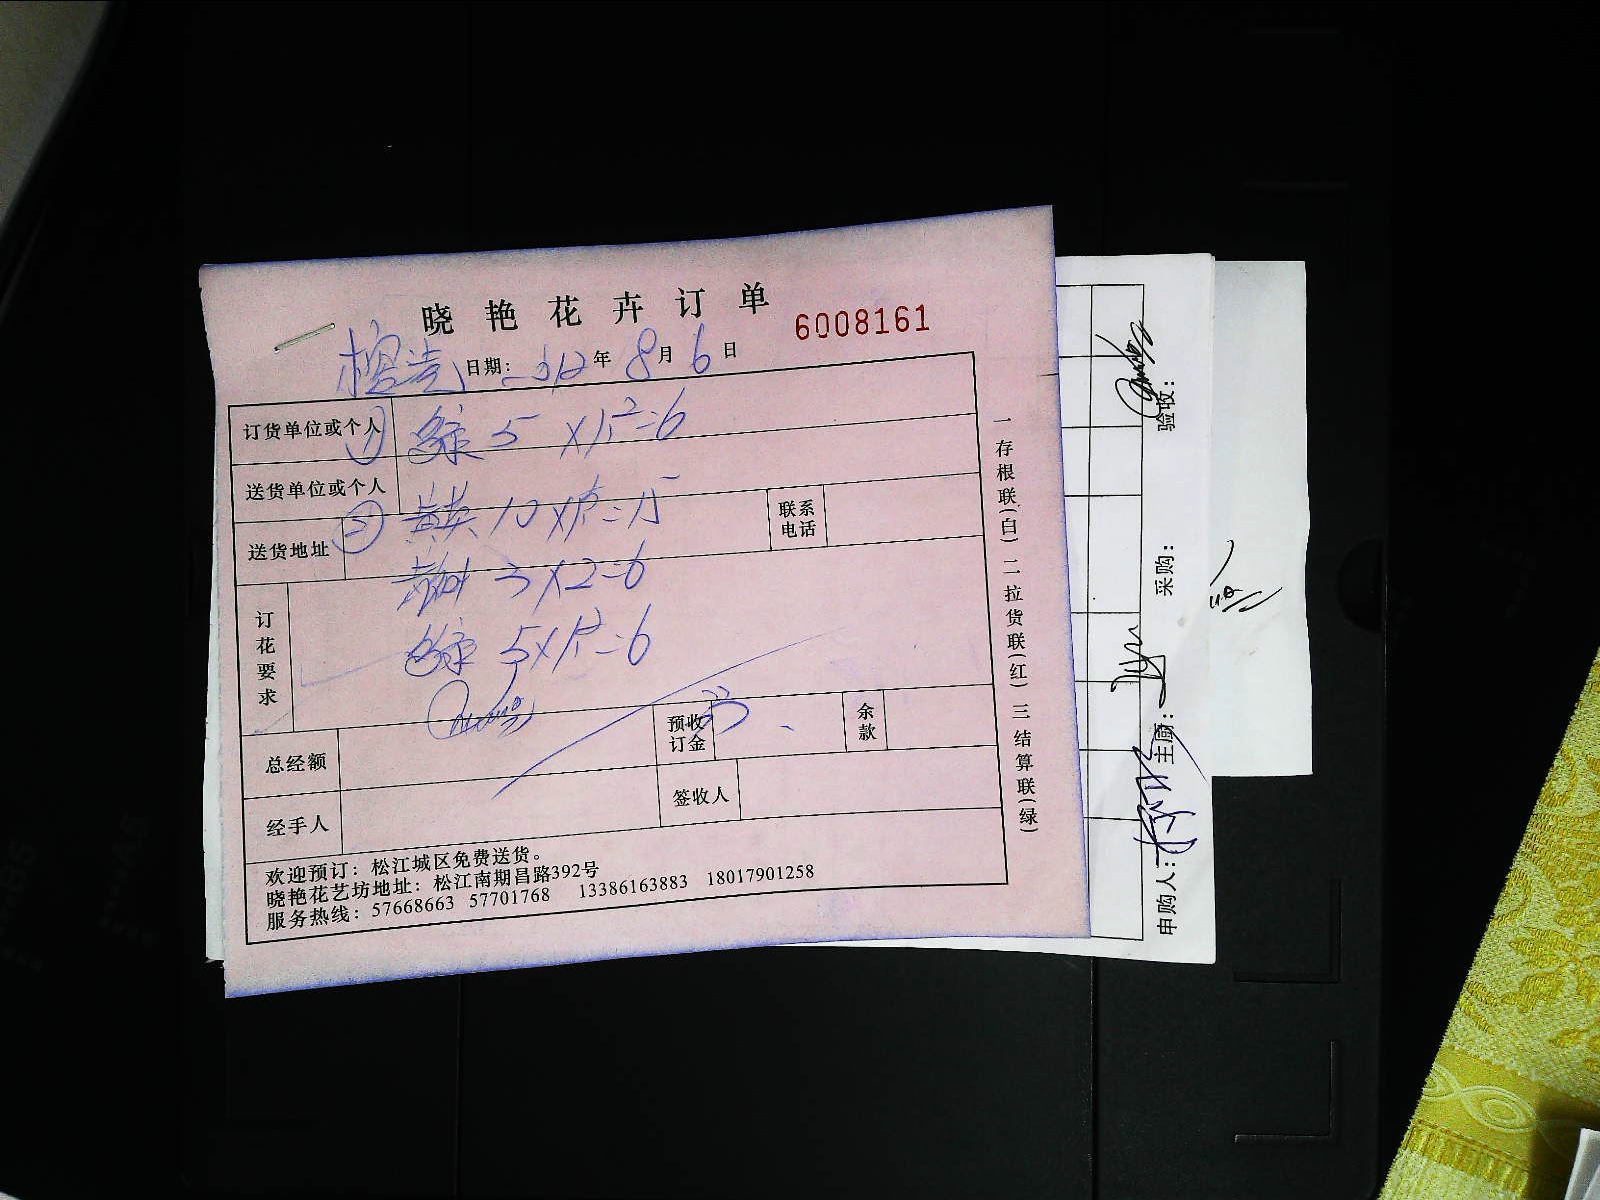 晓艳花卉订单
6008161
日期: 2012年8月6日
订货单位或个人 ① 5×1.2=6
送货单位或个人
送货地址 ② 10×1.5=15 联系电话
3×2=6
订花要求 5×1.2=6
总经额 预收订金 余款
经手人 签收人
欢迎预订：松江城区免费送货。
晓艳花艺坊地址：松江南期昌路392号
服务热线：57668663 57701768 13386163883 18017901258
一存根联(白) 二拉货联(红) 三结算联(绿)
申购人: 主厨: 采购: 验收: